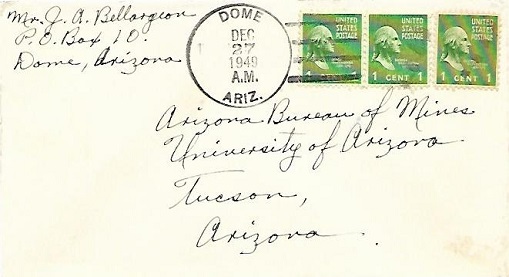 Mr. J. A. Bellargeon
P.O. Box 10
Dome, Arizona
DOME
DEC
27
1949
A.M.
ARIZ.
UNITED
STATES
POSTAGE
1 CENT 1
UNITED
STATES
POSTAGE
1 CENT 1
UNITED
STATES
POSTAGE
1 CENT 1
Arizona Bureau of Mines
University of Arizona
Tucson,
Arizona.